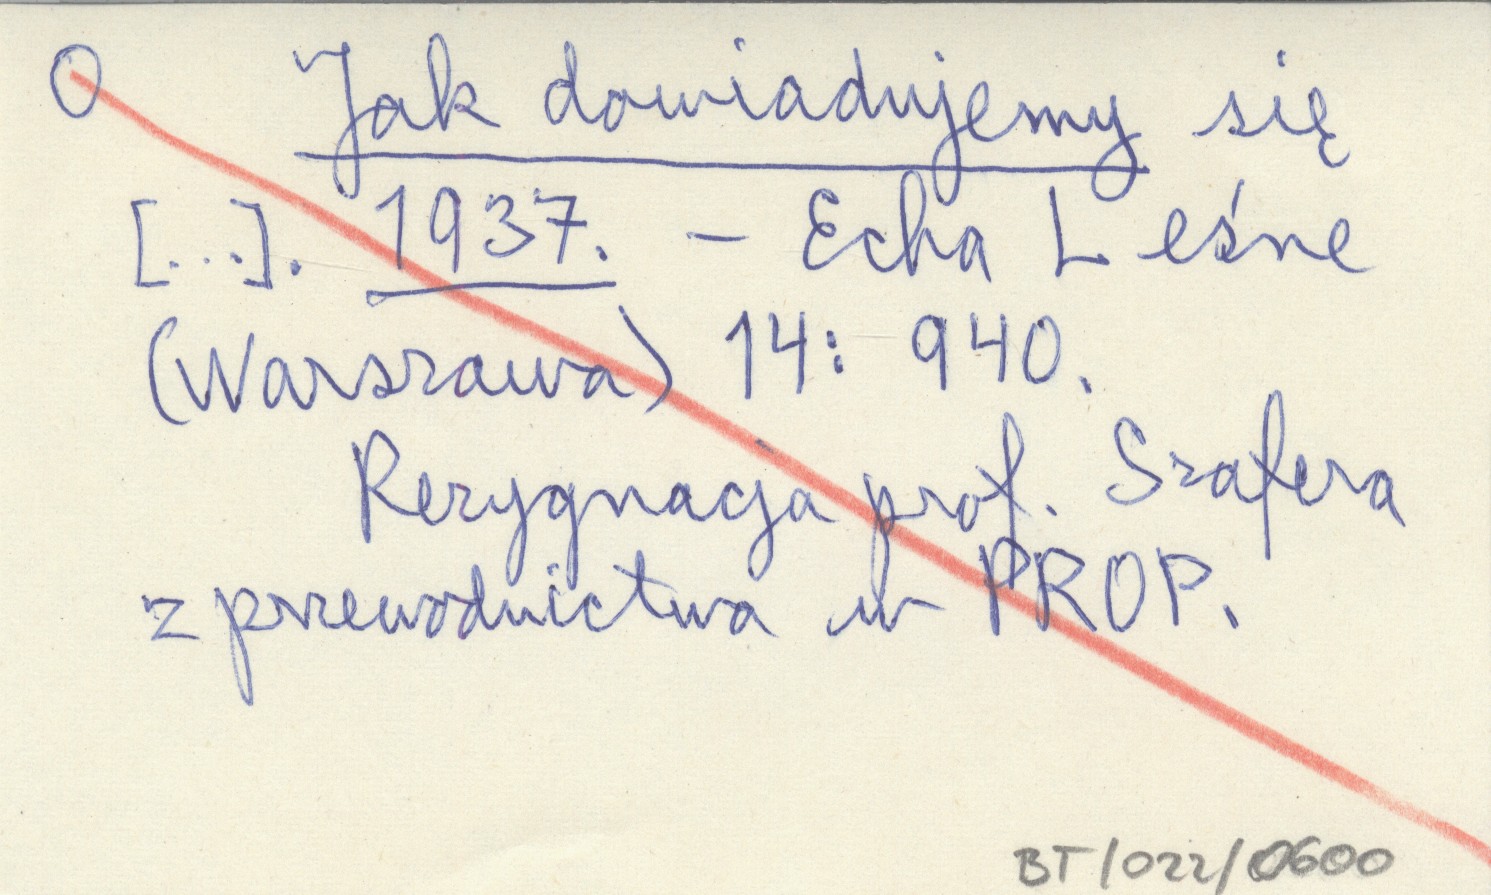 O Jak dowiadujemy się
[...]. 1937. - Echa Leśne
(Warszawa) 14: 940.
Rezygnacja prof. Szafera
z przewodnictwa w PROP.
BT/022/0600